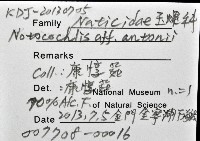 KDJ-20130705
Family Naticidae 玉螺科
Notocochlis aff. antonii
Remarks
Coll.: 康惇筑
Det.: 康惇筑
National Museum n=1
70% Alc. F of Natural Science
Date 2013.7.5 金門金寧湖下
007708-00016